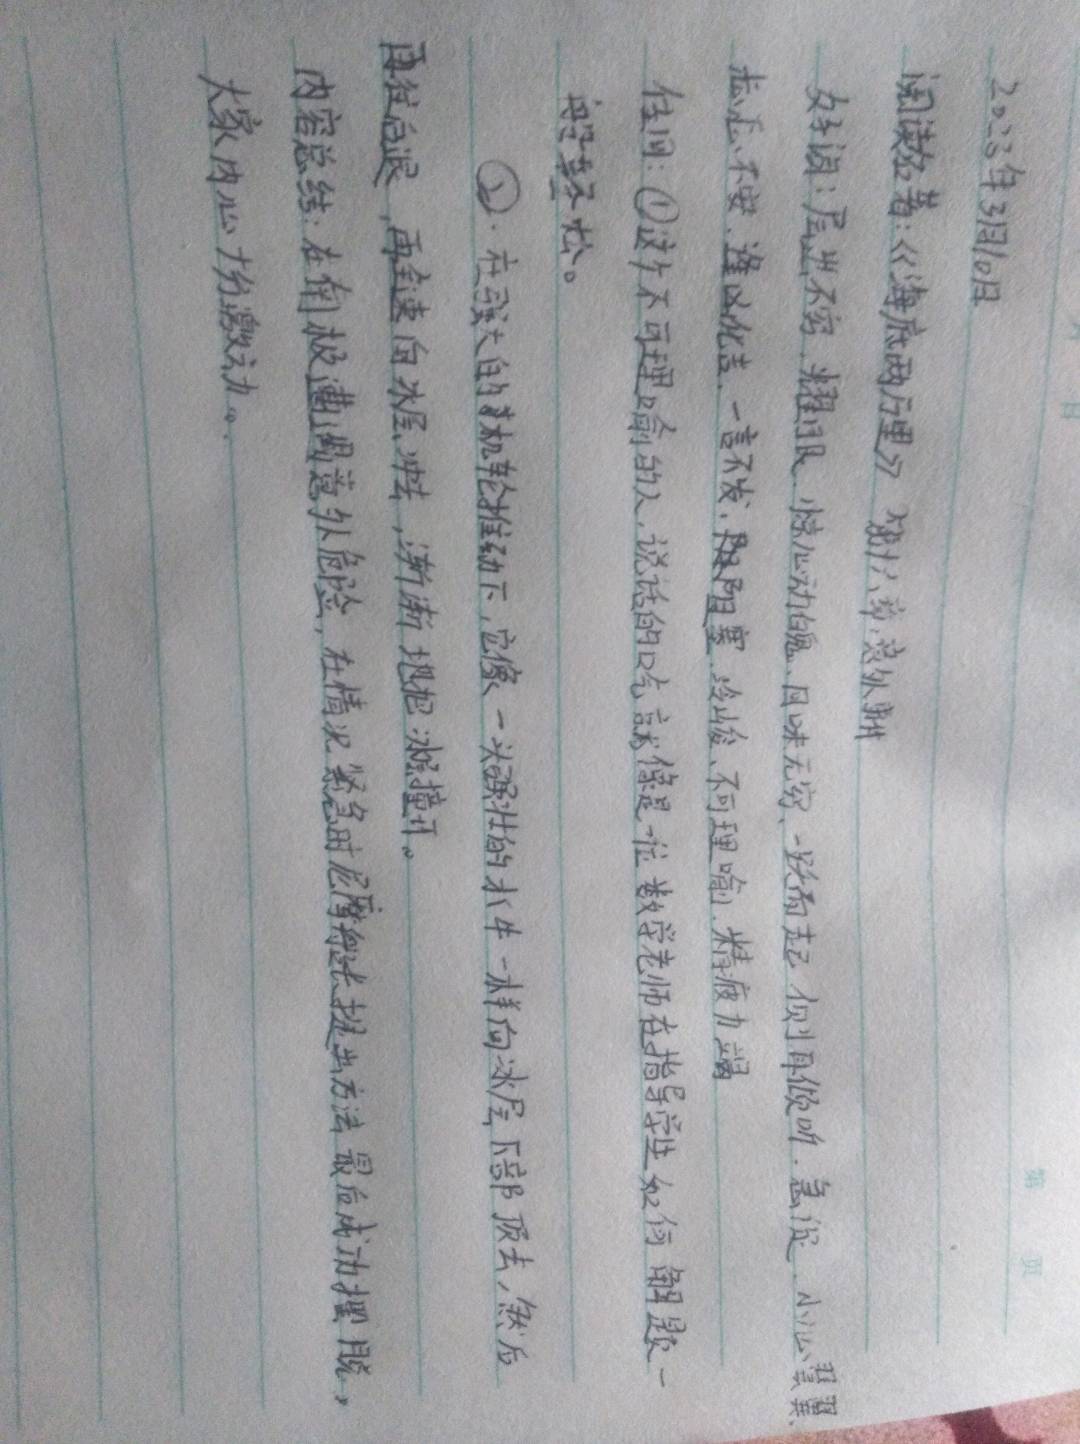 2023年3月10日
阅读名著:《海底两万里》 第十八章,意外事件
好词:层出不穷、耀眼、惊心动魄、回味无穷、一跃而起、侧耳倾听、急促、小心翼翼、
忐忑不安、逢凶化吉、一言不发、阻塞、冷峻、不可理喻、精疲力竭
佳句:①这个不可理喻的人,说话的口气就像是一位数学老师在指导学生如何解题一
般轻松。
②.在强大的推动下,它像一头强壮的水牛一样向冰层下部顶去,然后
再往后退,再全速向冰层冲去,渐渐地把冰层撞开。
内容总结:在南极遭遇意外危险,在情况紧急时尼摩船长提出方法最后成功摆脱,
大家内心十分激动。
第 页
月 日